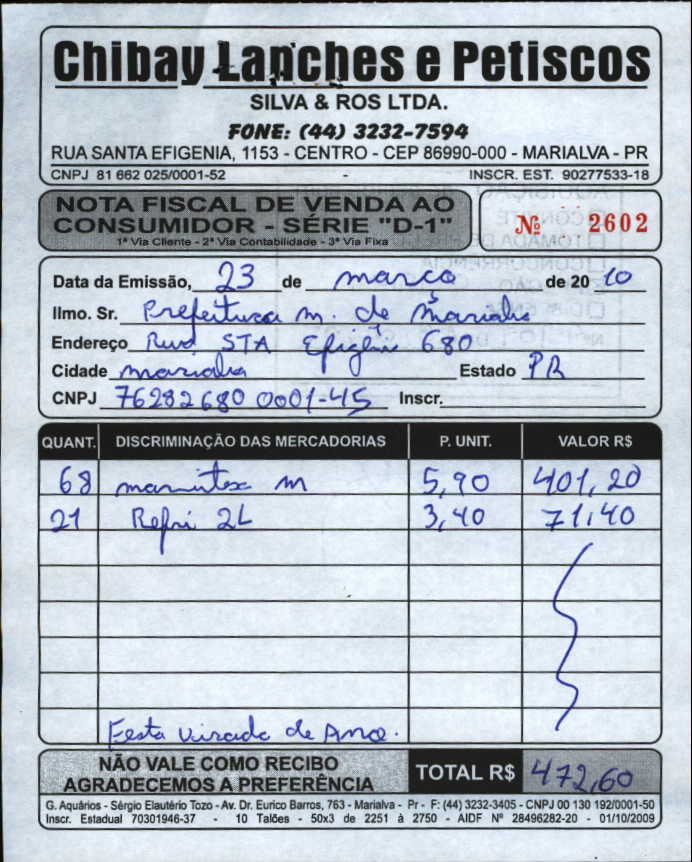 Chibay Lanches e Petiscos
SILVA & ROS LTDA.
FONE: (44) 3232-7594
RUA SANTA EFIGENIA, 1153 - CENTRO - CEP 86990-000 - MARIALVA - PR
CNPJ 81 662 025/0001-52 - INSCR. EST. 90277533-18
NOTA FISCAL DE VENDA AO
CONSUMIDOR - SÉRIE "D-1"
1ª Via Cliente - 2ª Via Contabilidade - 3ª Via Fixa
Nº 2602
Data da Emissão, 23 de março de 20 10
Ilmo. Sr. Prefeitura m. de Marialva
Endereço Rua STA Efigênia 680
Cidade marialva Estado PR
CNPJ 76282680 0001-45 Inscr.
QUANT. DISCRIMINAÇÃO DAS MERCADORIAS P. UNIT. VALOR R$
68 marmitex m 5,90 401,20
21 Refri 2L 3,40 71,40
Festa virada de Ano.
NÃO VALE COMO RECIBO
AGRADECEMOS A PREFERÊNCIA
TOTAL R$ 472,60
G. Aquários - Sérgio Elautério Tozo - Av. Dr. Eurico Barros, 763 - Marialva - Pr - F: (44) 3232-3405 - CNPJ 00 130 192/0001-50
Inscr. Estadual 70301946-37 - 10 Talões - 50x3 de 2251 à 2750 - AIDF Nº 28496282-20 - 01/10/2009